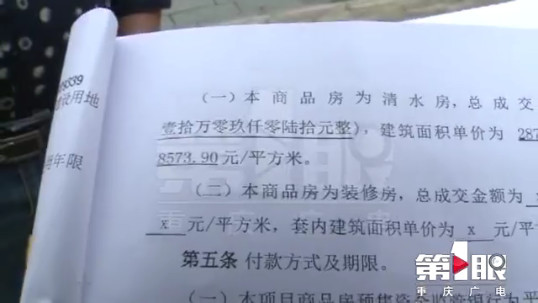 09339
建设用地
年限
(一)本商品房为清水房,总成交
壹拾万零玖仟零陆拾元整),建筑面积单价为 287
8573.90 元/平方米。
(二)本商品房为装修房,总成交金额为
x 元/平方米,套内建筑面积单价为 x 元/
第五条 付款方式及期限。
(一)本项目商品房预售资金
第1眼
重庆广电